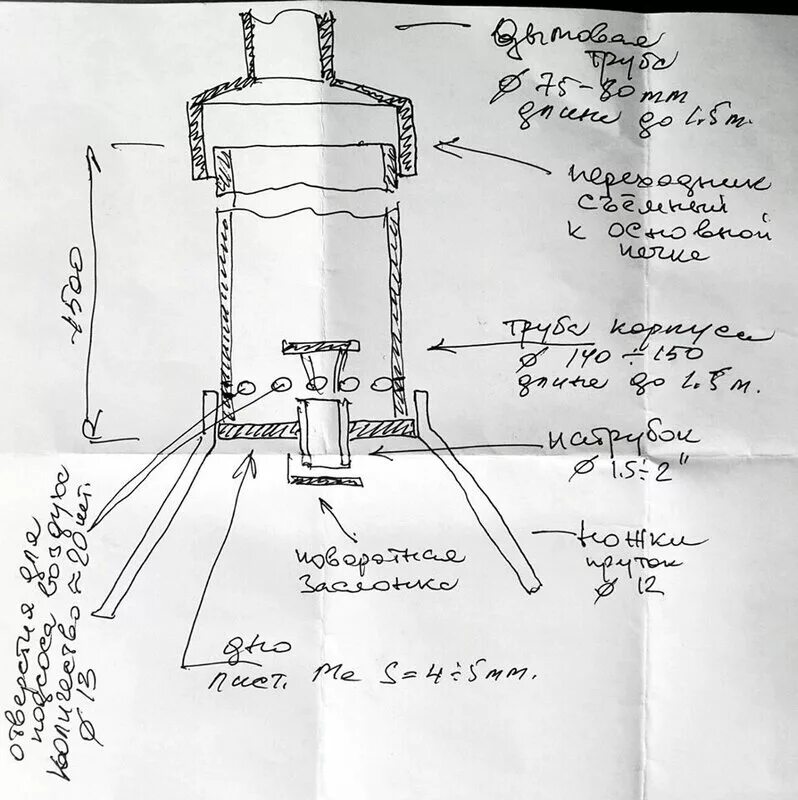 Дымовая
труба
Ø 75-80 mm
длине до 1.5 м.
переходник
съёмный
к основной
печке
1500
труба корпуса
Ø 140 ÷ 150
длине до 1.5 м.
патрубок
Ø 1.5÷2"
ножки
пруток
Ø 12
поворотная
заслонка
дно
лист. Ме S=4÷5мм.
отверстия для
подсоса воздуха
количество ≈ 20 шт.
Ø 13